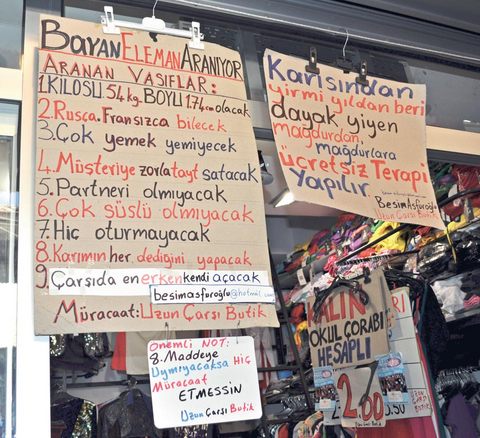 BAYAN ELEMAN ARANIYOR
ARANAN VASIFLAR:
1.KİLOSU 54 kg. BOYU 1.74 cm olacak
2.Rusca.Fransızca bilecek
3.Çok yemek yemiyecek
4.Müsteriye zorla tayt satacak
5.Partneri olmıyacak
6.Çok süslü olmıyacak
7.Hiç oturmayacak
8.Karımın her dediğini yapacak
9.Çarşıda en erken kendi açacak
besimasfuroğlu@hotmail.com
Müracaat: UZUN Çarşı Butik
ÖNEMLİ NOT:
8.Maddeye
Uymıyacaksa Hiç
Müracaat
ETMESSİN
Uzun Çarşı Butik
Karısından
yirmi yıldan beri
dayak yiyen
mağdurdan
mağdurlara
ücretsiz Terapi
Yapılır
BesimAsfuroğlu
Uzun Çarşı Butik
KALIN
OKUL ÇORABI
HESAPLI
2.50